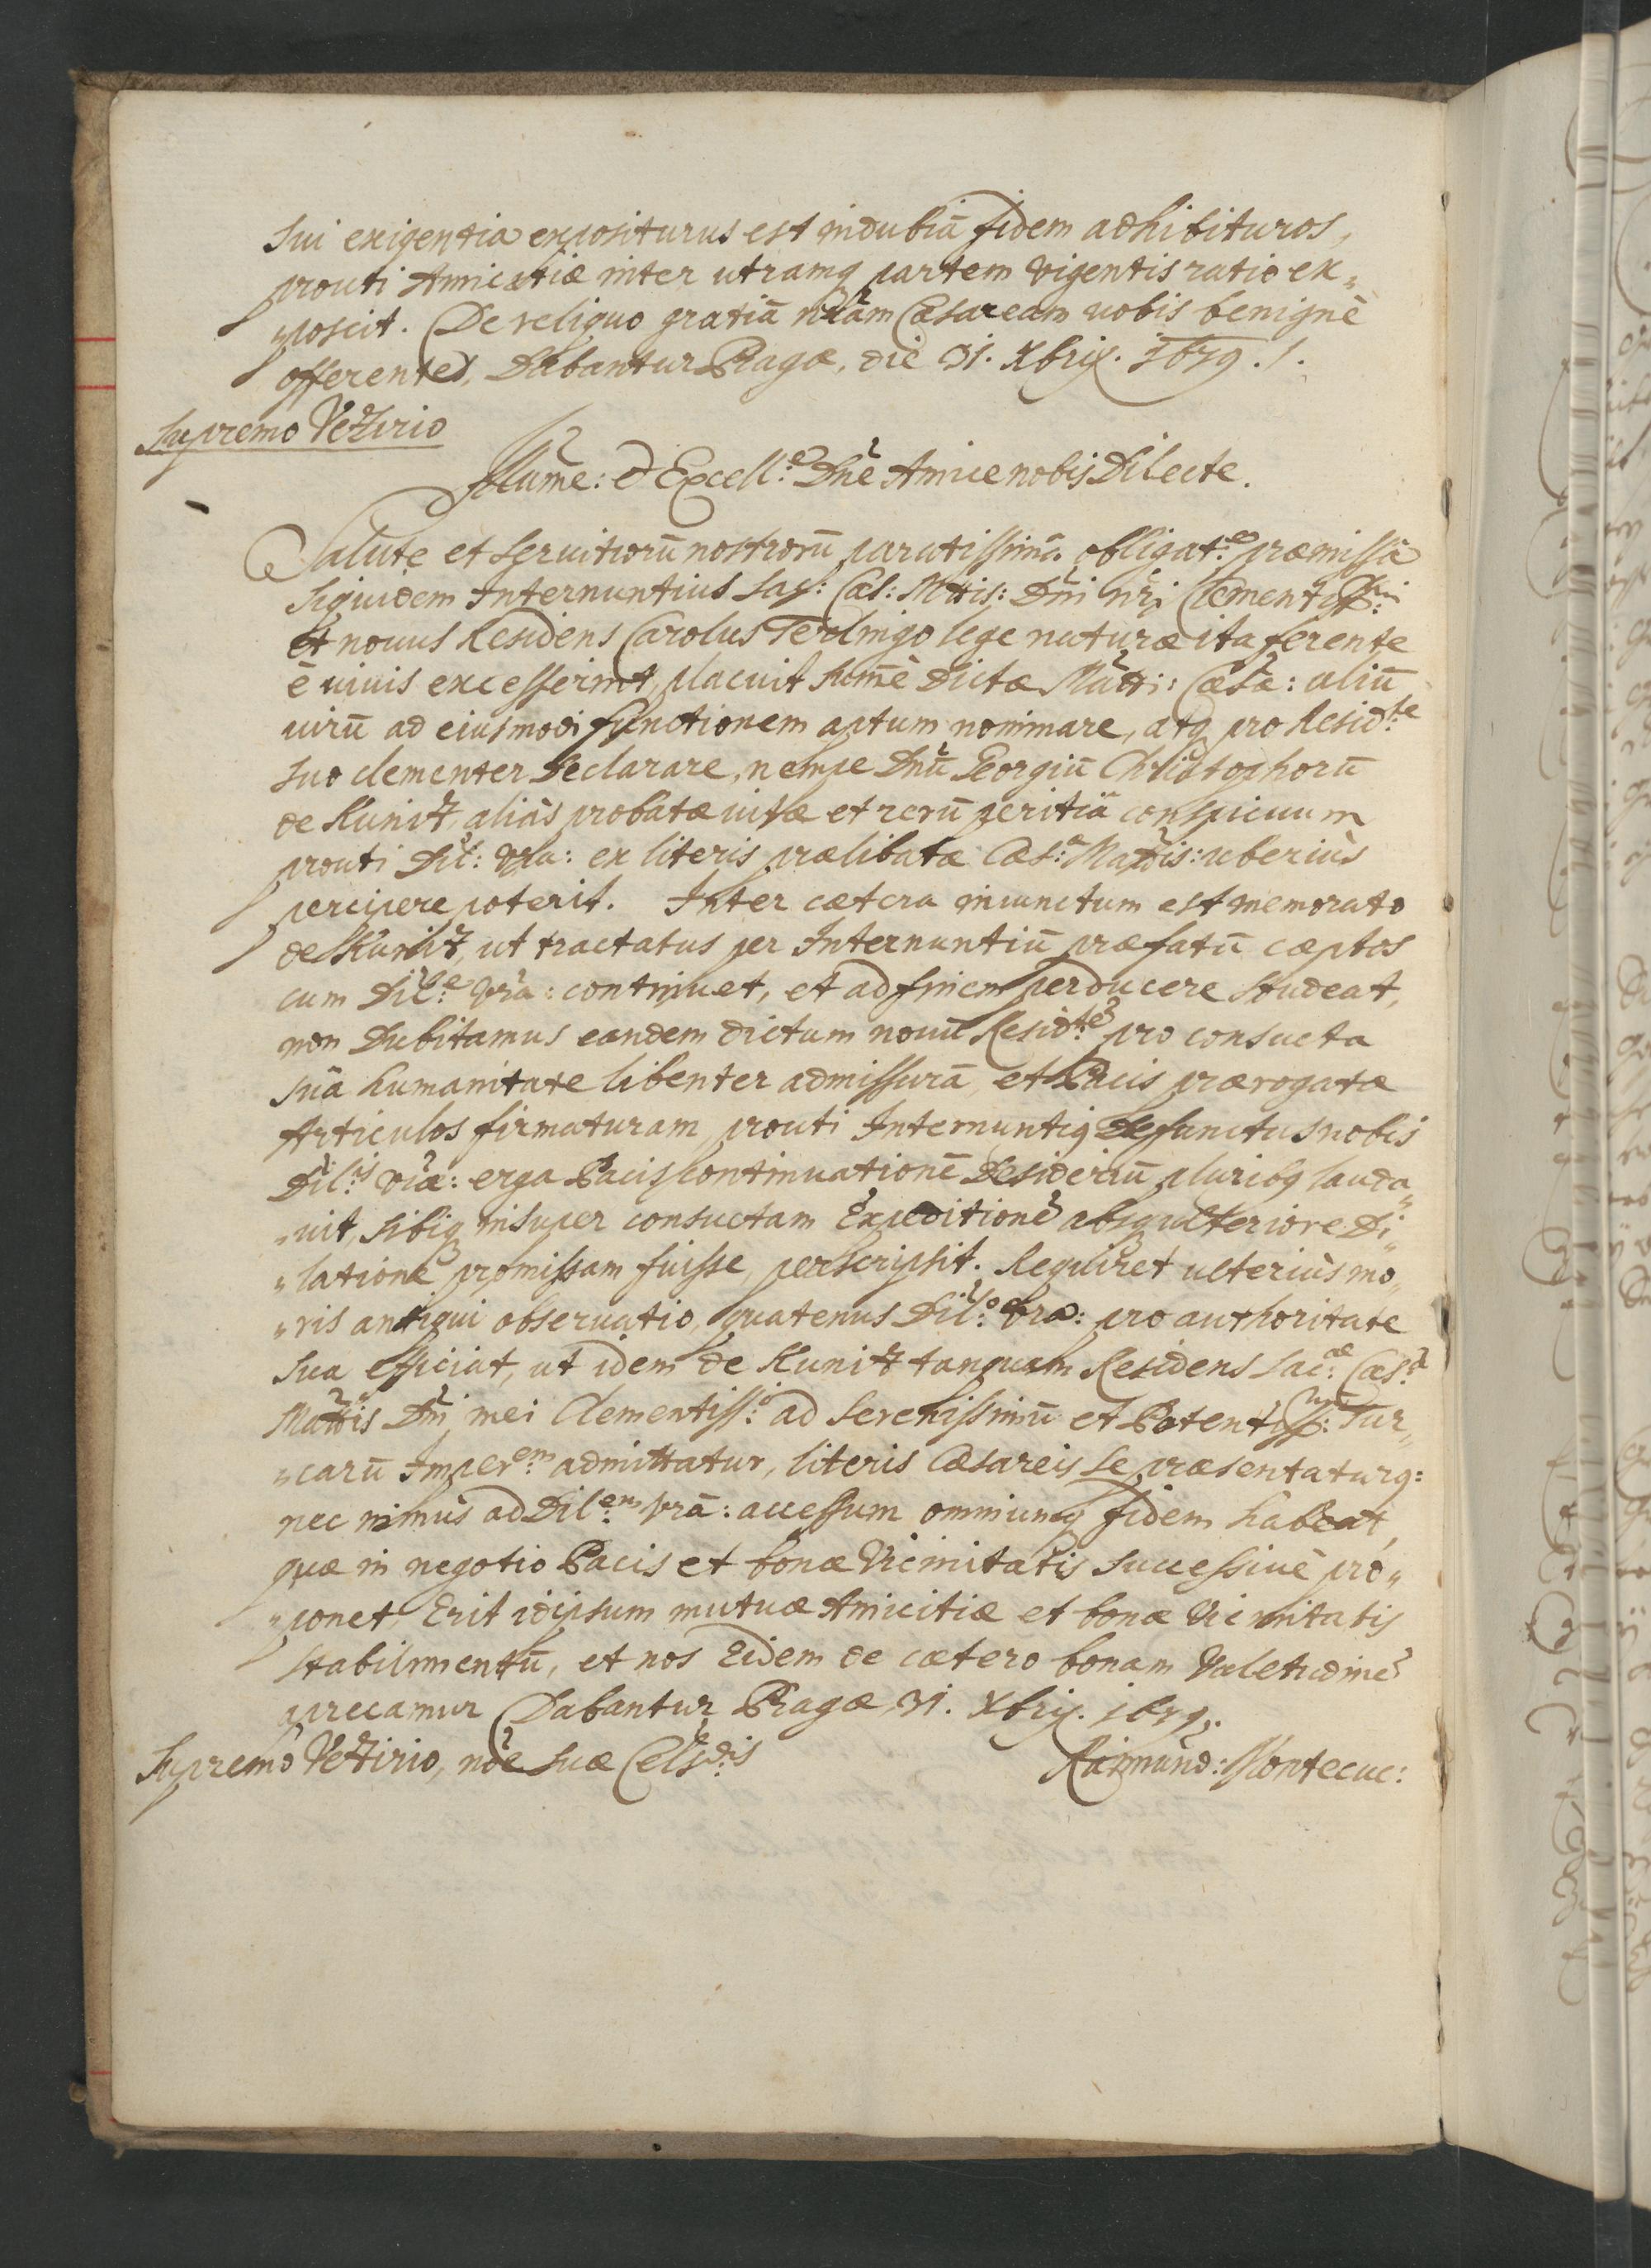 sui exigentia expositurus est indubiã fidem adhibituros,
prouti Amicitiæ inter utramq partem vigentis ratio ex„
„poscit. De reliquo gratiã nram Cæsaream vobis benignè
offerentes, Dabantur Pragæ, die 31. Xbris. 1679. /.
Supremo Vezirio
Illume: & Excell:e Dne Amice nobis Dilecte.
Salute et servitiorũ nostrorũ paratissimâ obligat:e præmissâ
Siquidem Internuntius Sac: Cæs: Mttis: Dni nri Clementissmi
et novus Residens Carolus Terlingo lege naturæ ita ferente
è vivis excesserint, placuit summè Dictæ Matti: Cæsæ: aliũ
virũ ad eiusmodi functionem aptum nominare, atq pro Resid:te
suo clementer declarare, nempe Dnũ Georgiũ Christophorũ
de Kunitz, aliàs probatæ vitæ et rerũ peritiâ conspicuum
prouti Dil: Vra: ex literis prælibatæ Cæs:æ Mattis: uberiùs
percipere poterit. Inter cætera iniunctum est memorato
de Kunitz, ut tractatus per Internuntiũ præfatũ cæptos
cum Dil:e Vra: continuet, et ad finem perducere studeat,
non Dubitamus eandem dictum novũ Resid:tẽ pro consueta
suâ humanitate libenter admissurã, et Pacis prærogatæ
Articulos firmaturam, prouti Internuntiq defunctus nobis
Dil:is Vræ: erga Pacis continuationẽ Desideriũ pluribq lauda„
„vit, sibiq insuper consuetam Expeditionẽ absq ulteriore Di„
„latione promissam fuisse, perscripsit. Requiret ulteriùs mo„
„ris antiqui observatio, quatenus Dil:o Vra: pro authoritate
sua efficiat, ut idem de Kunitz tanquam Residens Sac:æ Cæs:æ
Mattis Dni mei Clementiss:i ad Serenissimũ et Potentiss:m Tur„
„carũ Imper:em admittatur, literis Cæsareis se præsentaturq:
nec minùs ad Dil:em Vrã: accessum omniumq fidem habeat,
quæ in negotio Pacis et bonæ Vicinitatis successivè pro„
„ponet, Erit idipsum mutuæ Amicitiæ et bonæ Vicinitatis
stabilimentũ, et nos Eidem de cætero bonam Valetudinẽ
aprecamur Dabantur Pragæ 31. Xbris. 1679.
Supremo Vezirio, nõe suæ Cels:dis
Raimund: Montecuc: